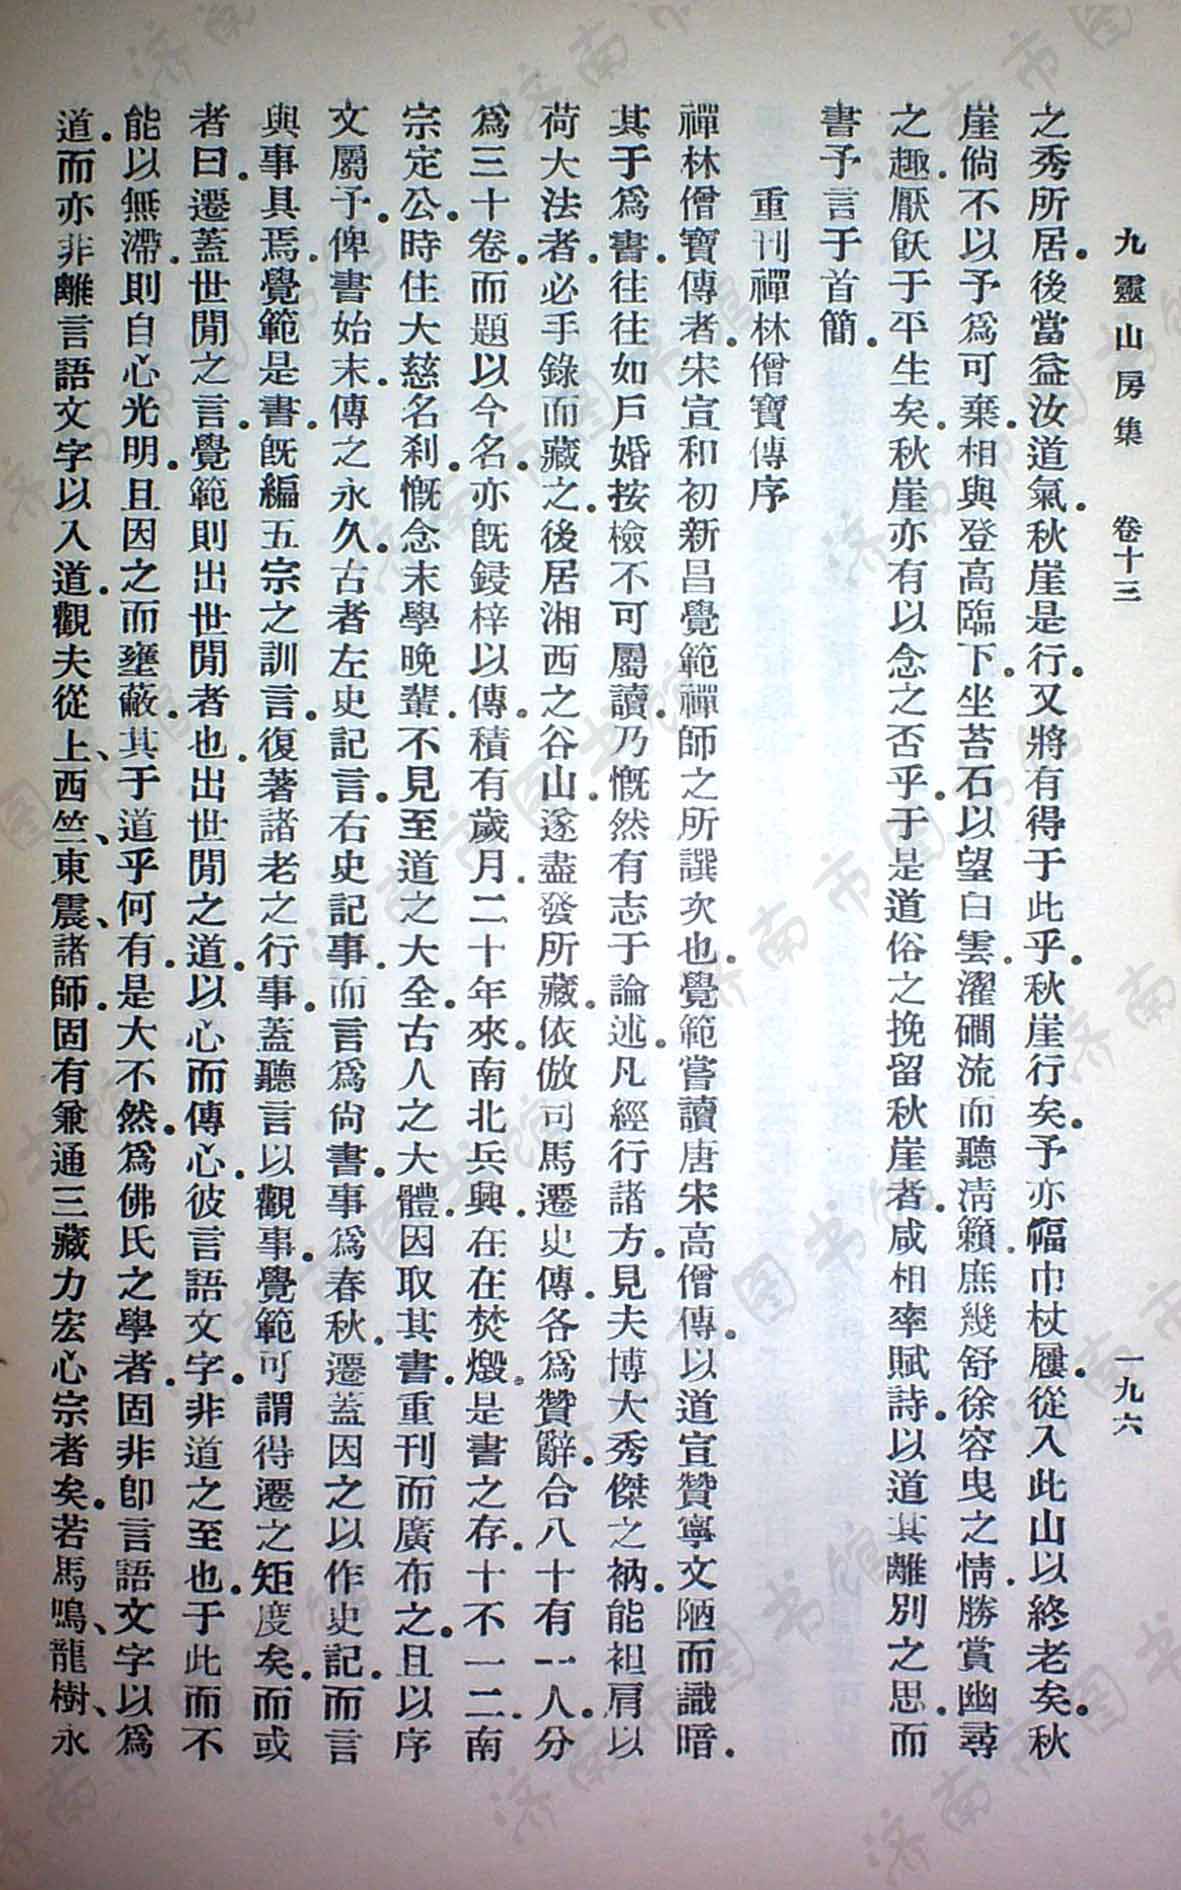 九靈山房集　卷十三　一九六
之秀所居。後當益汝道氣。秋崖是行。又將有得于此乎。秋崖行矣。予亦幅巾杖屨。從入此山以終老矣。秋
崖倘不以予爲可棄。相與登高臨下。坐苔石以望白雲。濯磵流而聽淸籟。庶幾舒徐容曳之情。勝賞幽尋
之趣。厭飫于平生矣。秋崖亦有以念之否乎。于是道俗之挽留秋崖者。咸相率賦詩。以道其離別之思。而
書予言于首簡。
重刊禪林僧寶傳序
禪林僧寶傳者。宋宣和初新昌覺範禪師之所譔次也。覺範嘗讀唐宋高僧傳。以道宣贊寧文陋而識暗。
其于爲書。往往如戶婚按檢不可屬讀。乃慨然有志于論述。凡經行諸方。見夫博大秀傑之衲。能袒肩以
荷大法者。必手錄而藏之。後居湘西之谷山。遂盡發所藏。依倣司馬遷史傳。各爲贊辭。合八十有一人。分
爲三十卷。而題以今名。亦旣鋟梓以傳。積有歲月。二十年來。南北兵興。在在焚燬。是書之存。十不一二。南
宗定公。時住大慈名剎。慨念末學晚輩。不見至道之大全。古人之大體。因取其書。重刊而廣布之。且以序
文屬予。俾書始末。傳之永久。古者左史記言。右史記事。而言爲尙書。事爲春秋。遷蓋因之以作史記。而言
與事具焉。覺範是書。旣編五宗之訓言。復著諸老之行事。蓋聽言以觀事。覺範可謂得遷之矩度矣。而或
者曰。遷蓋世閒之言。覺範則出世閒者也。出世閒之道。以心而傳心。彼言語文字。非道之至也。于此而不
能以無滯。則自心光明。且因之而壅蔽。其于道乎何有。是大不然。爲佛氏之學者。固非卽言語文字以爲
道。而亦非離言語文字以入道。觀夫從上、西竺、東震、諸師。固有兼通三藏力宏心宗者矣。若馬鳴、龍樹、永